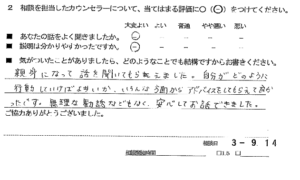 2 相談を担当したカウンセラーについて、当てはまる評価に○(㊀)をつけてください。
大変よい よい 普通 やや悪い 悪い
■ あなたの話をよく聞きましたか。
■ 説明は分かりやすかったですか。
■ 気がついたことがありましたら、どのようなことでも結構ですからお書きください。
親身になって話を聞いてもらえました。自分がどのように
行動していけばよいか、いろんな面からアドバイスをしてもらえて良か
ったです。無理な勧誘などもなく、安心してお話できました。
ご協力ありがとうございました。
3-9.14